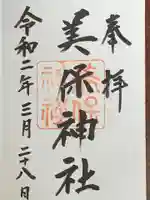 奉拝
美保神社
令和二年三月二十八日